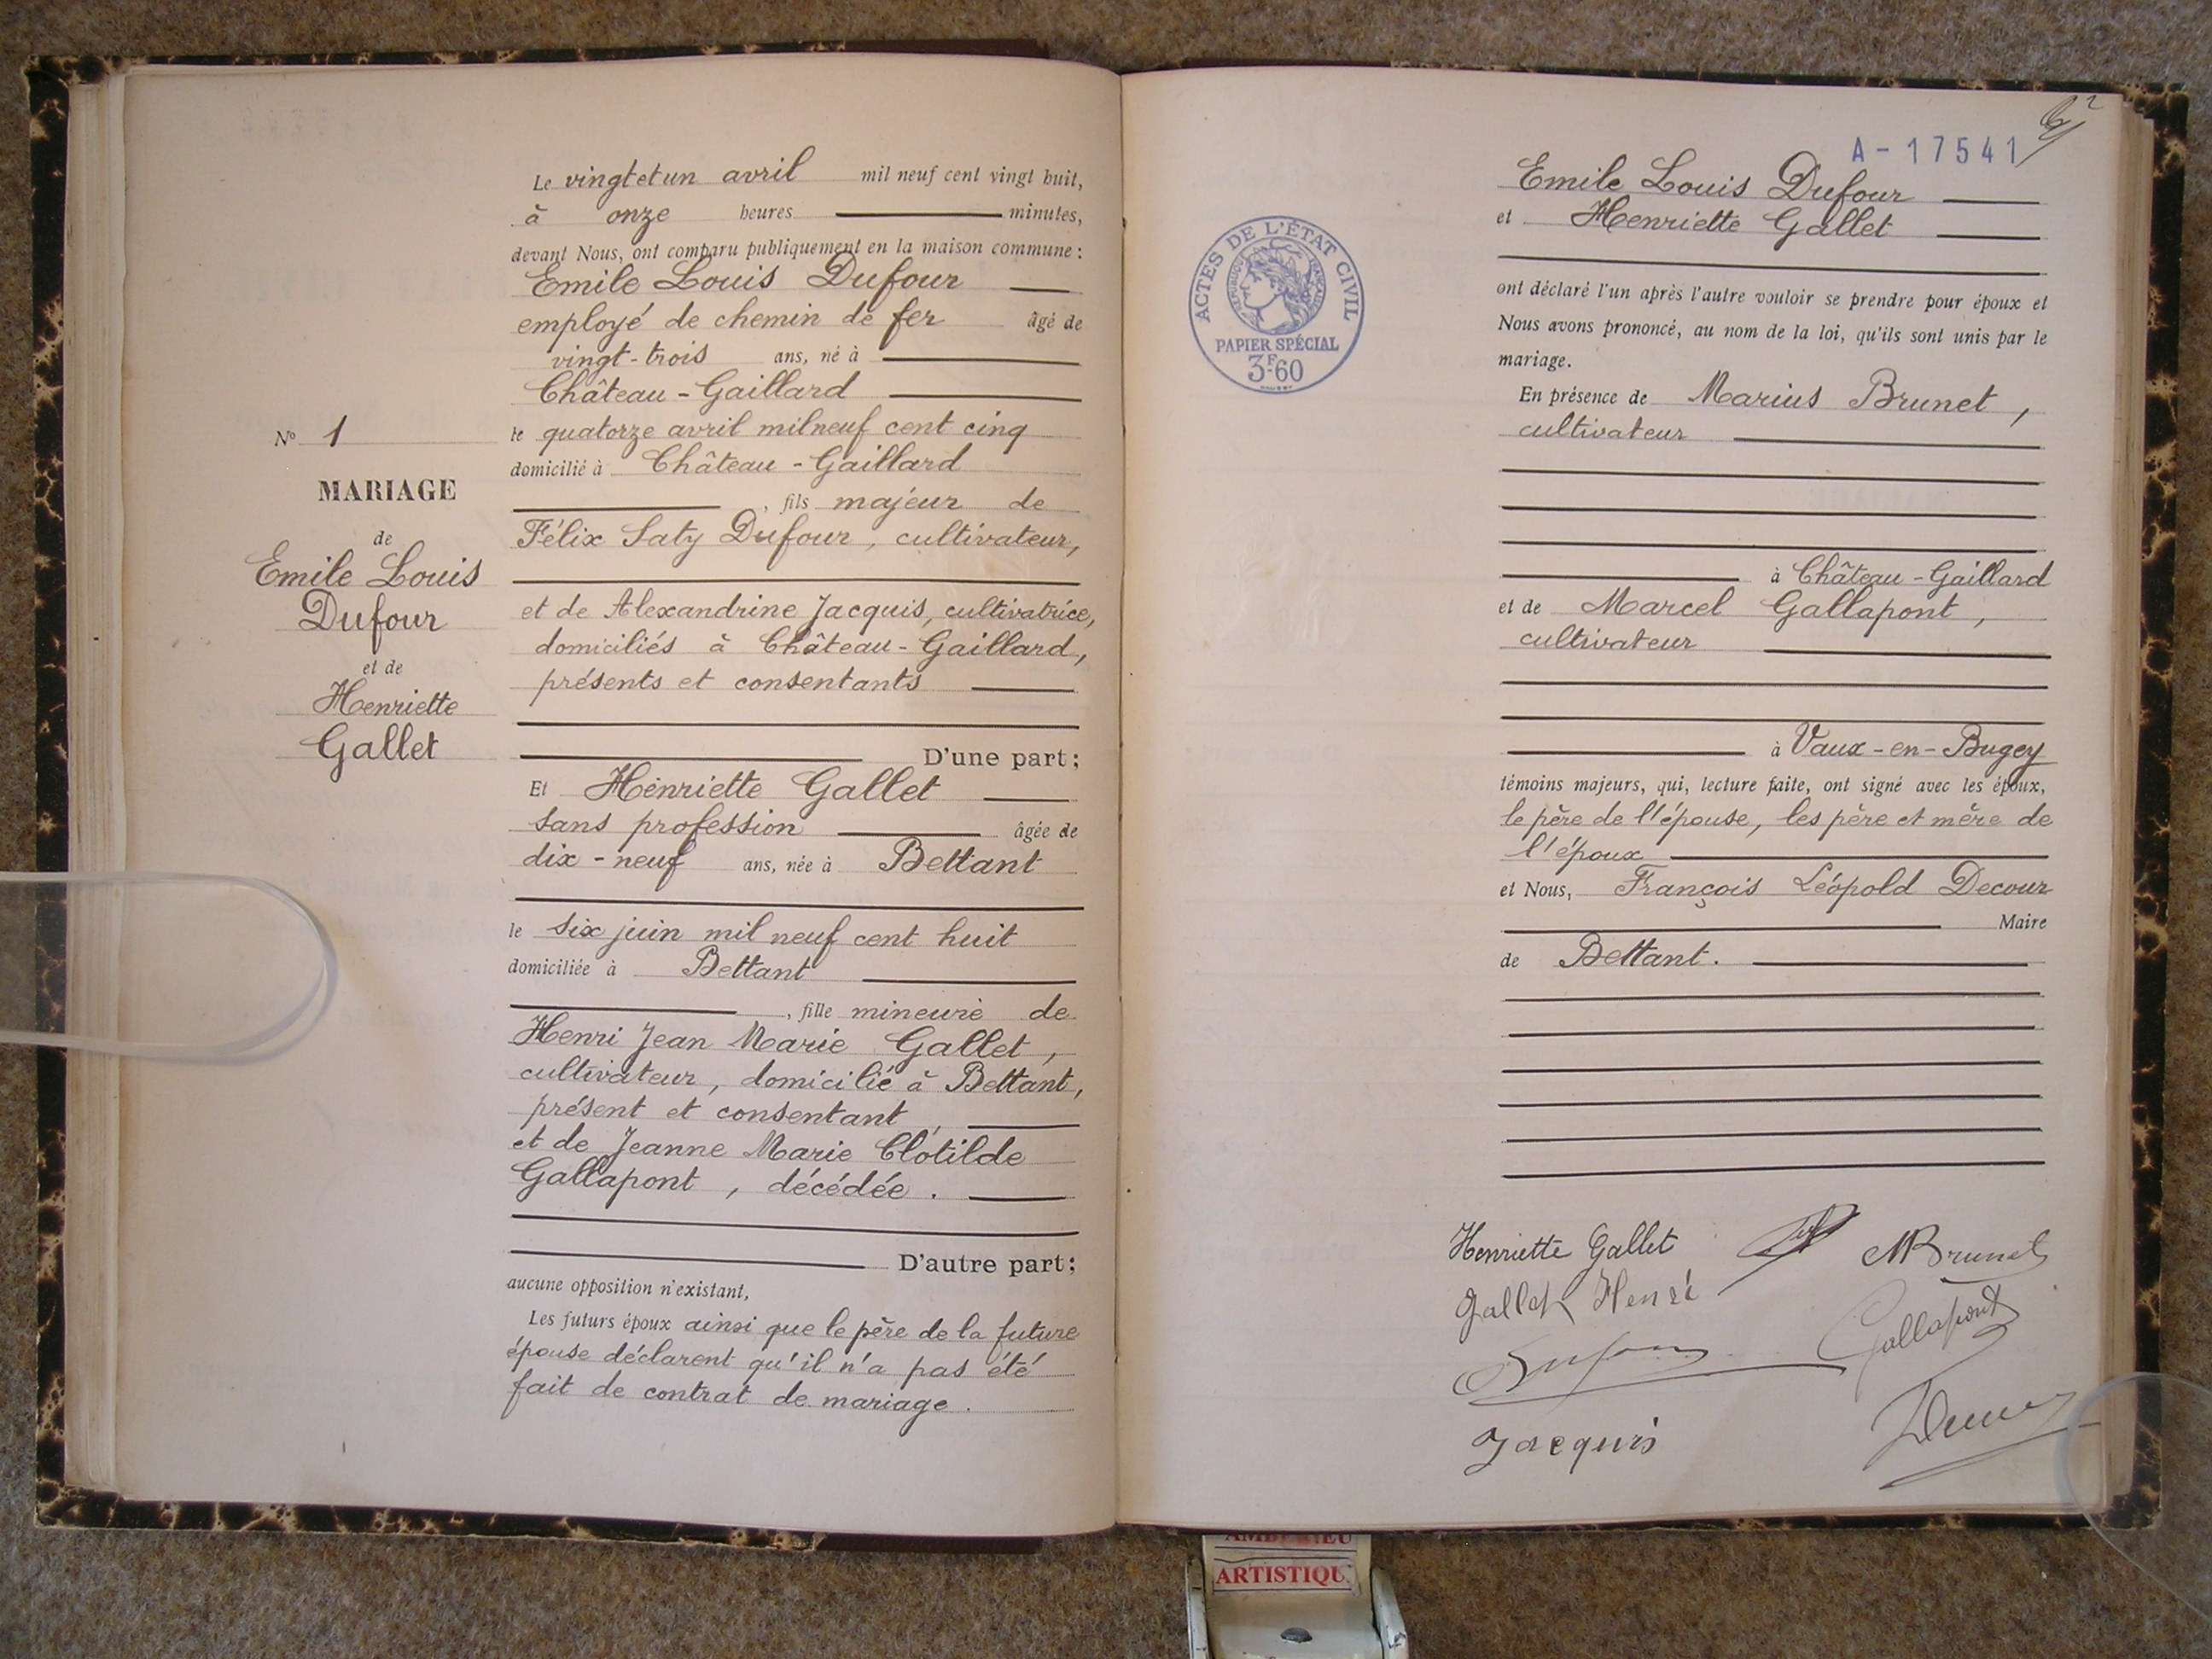 Nº 1
MARIAGE
de
Emile Louis
Dufour
et de
Henriette
Gallet
Le vingt et un avril mil neuf cent vingt huit,
à onze heures minutes,
devant Nous, ont comparu publiquement en la maison commune :
Emile Louis Dufour
employé de chemin de fer âgé de
vingt-trois ans, né à
Château-Gaillard
le quatorze avril mil neuf cent cinq
domicilié à Château-Gaillard
, fils majeur de
Félix Saty Dufour, cultivateur,
et de Alexandrine Jacquis, cultivatrice,
domiciliés à Château-Gaillard,
présents et consentants
D'une part ;
Et Henriette Gallet
sans profession âgée de
dix-neuf ans, née à Bettant
le six juin mil neuf cent huit
domiciliée à Bettant
, fille mineure de
Henri Jean Marie Gallet,
cultivateur, domicilié à Bettant,
présent et consentant,
et de Jeanne Marie Clotilde
Gallapont, décédée.
D'autre part ;
aucune opposition n'existant,
Les futurs époux ainsi que le père de la future
épouse déclarent qu'il n'a pas été
fait de contrat de mariage.
A-17541
ACTES DE L'ÉTAT CIVIL
RÉPUBLIQUE FRANÇAISE
PAPIER SPÉCIAL
3F.60
Emile Louis Dufour
et Henriette Gallet
ont déclaré l'un après l'autre vouloir se prendre pour époux et
Nous avons prononcé, au nom de la loi, qu'ils sont unis par le
mariage.
En présence de Marius Brunet,
cultivateur
à Château-Gaillard
et de Marcel Gallapont,
cultivateur
à Vaux-en-Bugey
témoins majeurs, qui, lecture faite, ont signé avec les époux,
le père de l'épouse, les père et mère de
l'époux
et Nous, François Léopold Decour
Maire
de Bettant.
Henriette Gallet
MBrunet
Gallet Henri
Gallapont
Dufour
Jacquis
ARTISTIQU